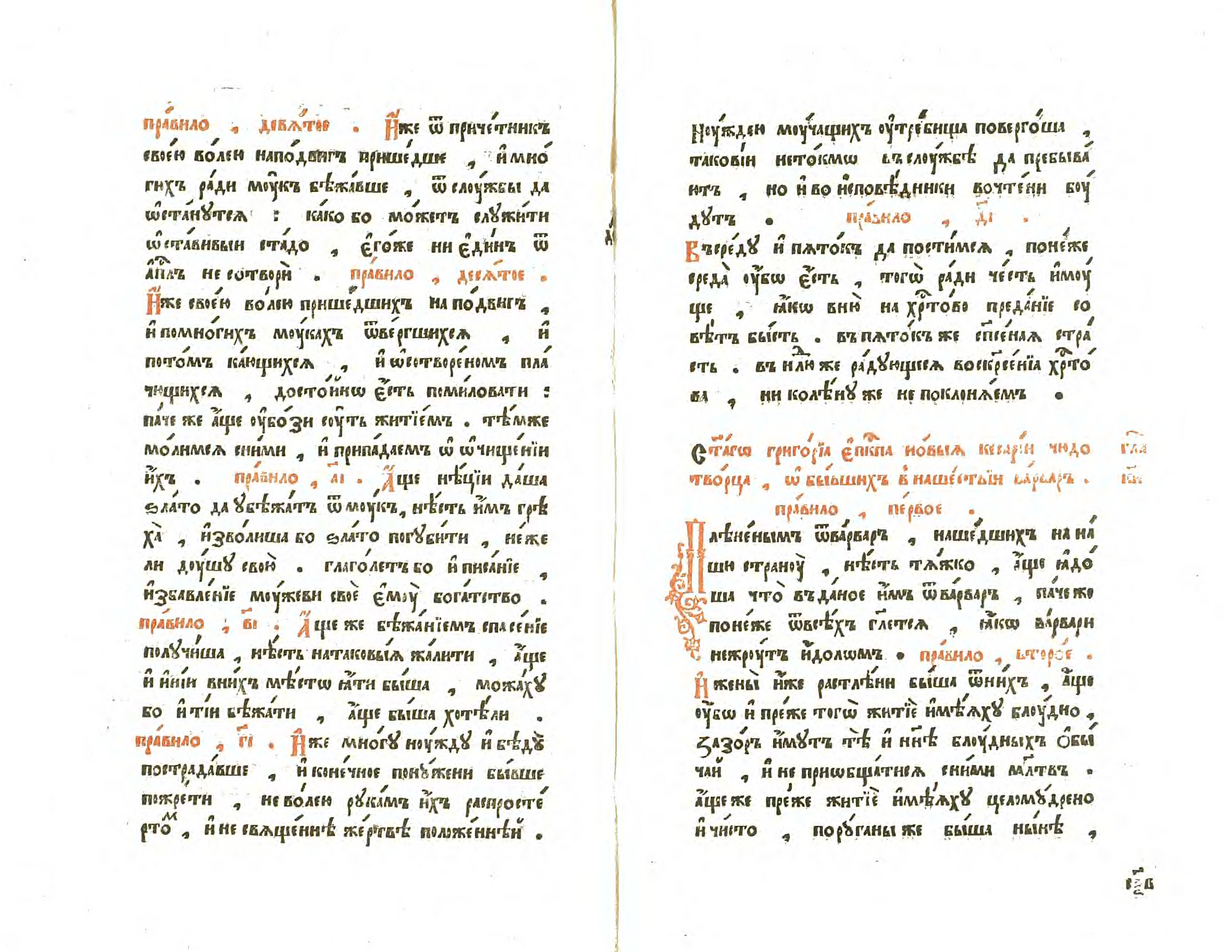 пра́вило , девѧ́тое . И҆́же ѿ приче́тникъ
свое́ю во́лею наподвигъ прише́дше , и҆ мно́
гихъ ра́ди мо́укъ бѣжа́вше , ѿ слоу́жбы да
ѡ҆ста́нутсѧ : ка́ко бо мо́жетъ слꙋжи́ти
ѡ҆ста́вивыи ста́до , є҆го́же ни є҆ди́нъ ѿ
а҆п҃лъ не сотвори̑ . пра́вило , десѧ́тое .
И҆́же свое́ю во́лею прише́дшихъ на по́двигъ ,
и҆ помно́гихъ мо́укахъ ѿве́ргшихсѧ , и҆
пото́мъ ка́ющихсѧ , и҆ ѡ҆сотворе́номъ пла́
чющихсѧ , досто́йнѡ є҆́сть поми́ловати :
па́че же а҆́ще оу҆бо́зи соу́ть житїе́мъ . тѣ́мже
мо́лимсѧ сни́ми , и҆ припа́даемъ ѡ҆ ѡ҆чище́нїи
и҆́хъ . пра́вило , а҃і . А҆́ще нѣ́цїи да́ша
ѕла́то да ᲂубѣжа́тъ ѿ моу́къ, нѣ́сть и҆́мъ грѣ
ха̀ , и҆зво́лиша бо ѕла́то погꙋби́ти , не́же
ли доу́шꙋ свою̀ . глаго́летъ бо и҆ писа́нїе ,
и҆збавле́нїе моу́жеви своѐ є҆моу̀ бога́тство .
пра́вило , в҃і . А҆́ще же бѣжа́нїемъ спасе́нїе
полꙋчи́ша , нѣ́сть натаковы́ѧ жа́лити , а҆́ще
и҆ и҆ні́и вни́хъ мѣ́стѡ ꙗ҆́ти бы́ша , можа́хꙋ
бо и҆ ті́и бѣжа́ти , а҆́ще бы́ша хотѣ́ли .
пра́вило , г҃і . И҆́же мно́гꙋ ноу́ждꙋ и҆ бѣ́дꙋ
пострада́вше , и҆ коне́чное понꙋ́жени бы́вше
пожре́ти , не во́лею рꙋка́мъ и҆́хъ распросте́
рто́м , и҆ не свѧще́ннѣ же́ртвѣ положе́ннѣй .
ноу́ждею моу́чащихъ оу҆тре́бища поверго́ша ,
такові́и нето́кмѡ въ слоу́жбѣ да пребыва́
ютъ , но и҆ во и҆сповѣ́дники вочте́ни боу́
дутъ . пра́вило , д҃і .
Въ сре́дꙋ и҆ пѧто́къ да пости́мсѧ , поне́же
среда̀ оу҆́бѡ є҆́сть , тогѡ̀ ра́ди че́сть и҆моу́
ще , ꙗ҆́кѡ вню̀ на хр҃то́во преда́нїе со
вѣ́тъ бы́сть . въ пѧто́къ же сп҃се́наѧ стра́
сть . въ нд҃лю же ра́дꙋющесѧ воскр҃се́нїѧ хр҃то́
ва , ни колѣ́нꙋ же не поклонѧ́емъ .
С҃та́гѡ григо́рїа є҆пк҃па но́выѧ кесарі́и чюдо гла
тво́рца , ѡ҆ бы́вшихъ в наше́ствїи ва́рваръ .
пра́вило , пе́рвое .
Плѣне́нымъ ѿва́рваръ , наше́дшихъ на на́
шю странꙋ̀ , нѣ́сть тѧ́жко , а҆́ще ꙗ҆до́
ша что̀ въ да́ное и҆́мъ ѿ ва́рваръ , па́че же
поне́же ѿвсѣ́хъ гл҃етсѧ , ꙗ҆́кѡ ва́рвари
нежроу́тъ и҆́доломъ . пра́вило , второ́е .
И҆ жены̀ и҆́же растлѣ́ни бы́ша ѿни́хъ , а҆́ще
оу҆́бѡ и҆ пре́же тогѡ̀ житїѐ и҆мѣ́ѧхꙋ блоу́дно ,
ꙁазо́ръ и҆́мꙋтъ тѣ̀ и҆ нн҃ѣ блоу́дныхъ ѻ҆бы́
чаи , и҆ не приѡбща́тисѧ сни́ми мл҃твъ .
а҆́ще же пре́же житїѐ и҆мѣ́ѧхꙋ целомꙋ́дрено
и҆ чи́сто , порꙋ́ганы же бы́ша ны́нѣ ,